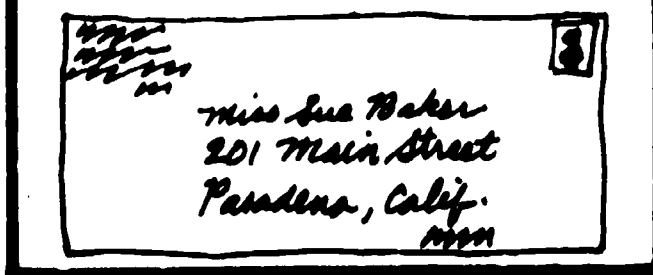 Miss Sue Baker
201 Main Street
Pasadena, Calif.